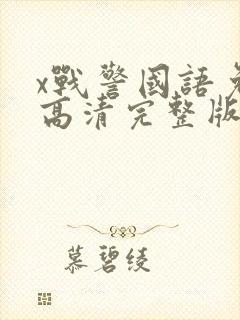 x戰警國語免
高清完整版
慕碧綾